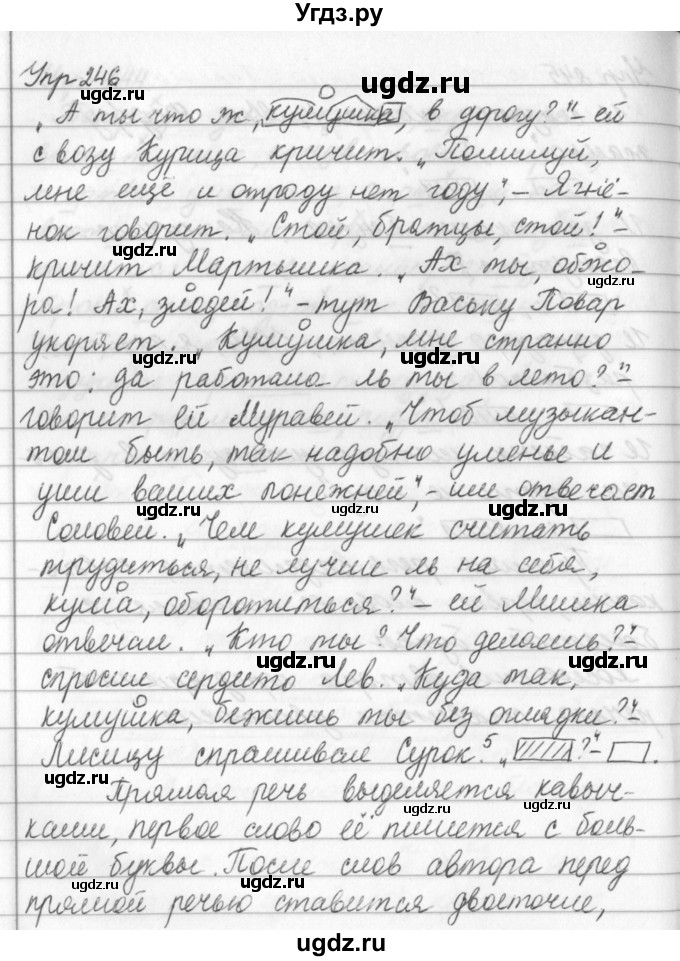 Угдз.ру
Упр 246
„А ты что ж, кумушка, в дорогу?"– ей
с возу Курица кричит. „Помилуй,
мне ещё и отроду нет году",– Ягнё-
нок говорит. „Стой, братцы, стой!"–
кричит Мартышка. „Ах ты, обжо-
ра! Ах, злодей!"– тут Ваську Повар
укоряет. „Кумушка, мне странно
это: да работала ль ты в лето?"–
говорит ей Муравей. „Чтоб музыкан-
том быть, так надобно уменье и
уши ваших понежней",– им отвечает
Соловей. „Чем кумушек считать
трудиться, не лучше ль на себя,
кума, оборотиться?"– ей Мишка
отвечал. „Кто ты? Что делаешь?"–
спросил сердито Лев. „Куда так,
кумушка, бежишь ты без оглядки?"–
Лисицу спрашивал Сурок.⁵ „ ?"– .
Прямая речь выделяется кавыч-
ками, первое слово её пишется с боль-
шой буквы. После слов автора перед
прямой речью ставится двоеточие,
ugdz.ru